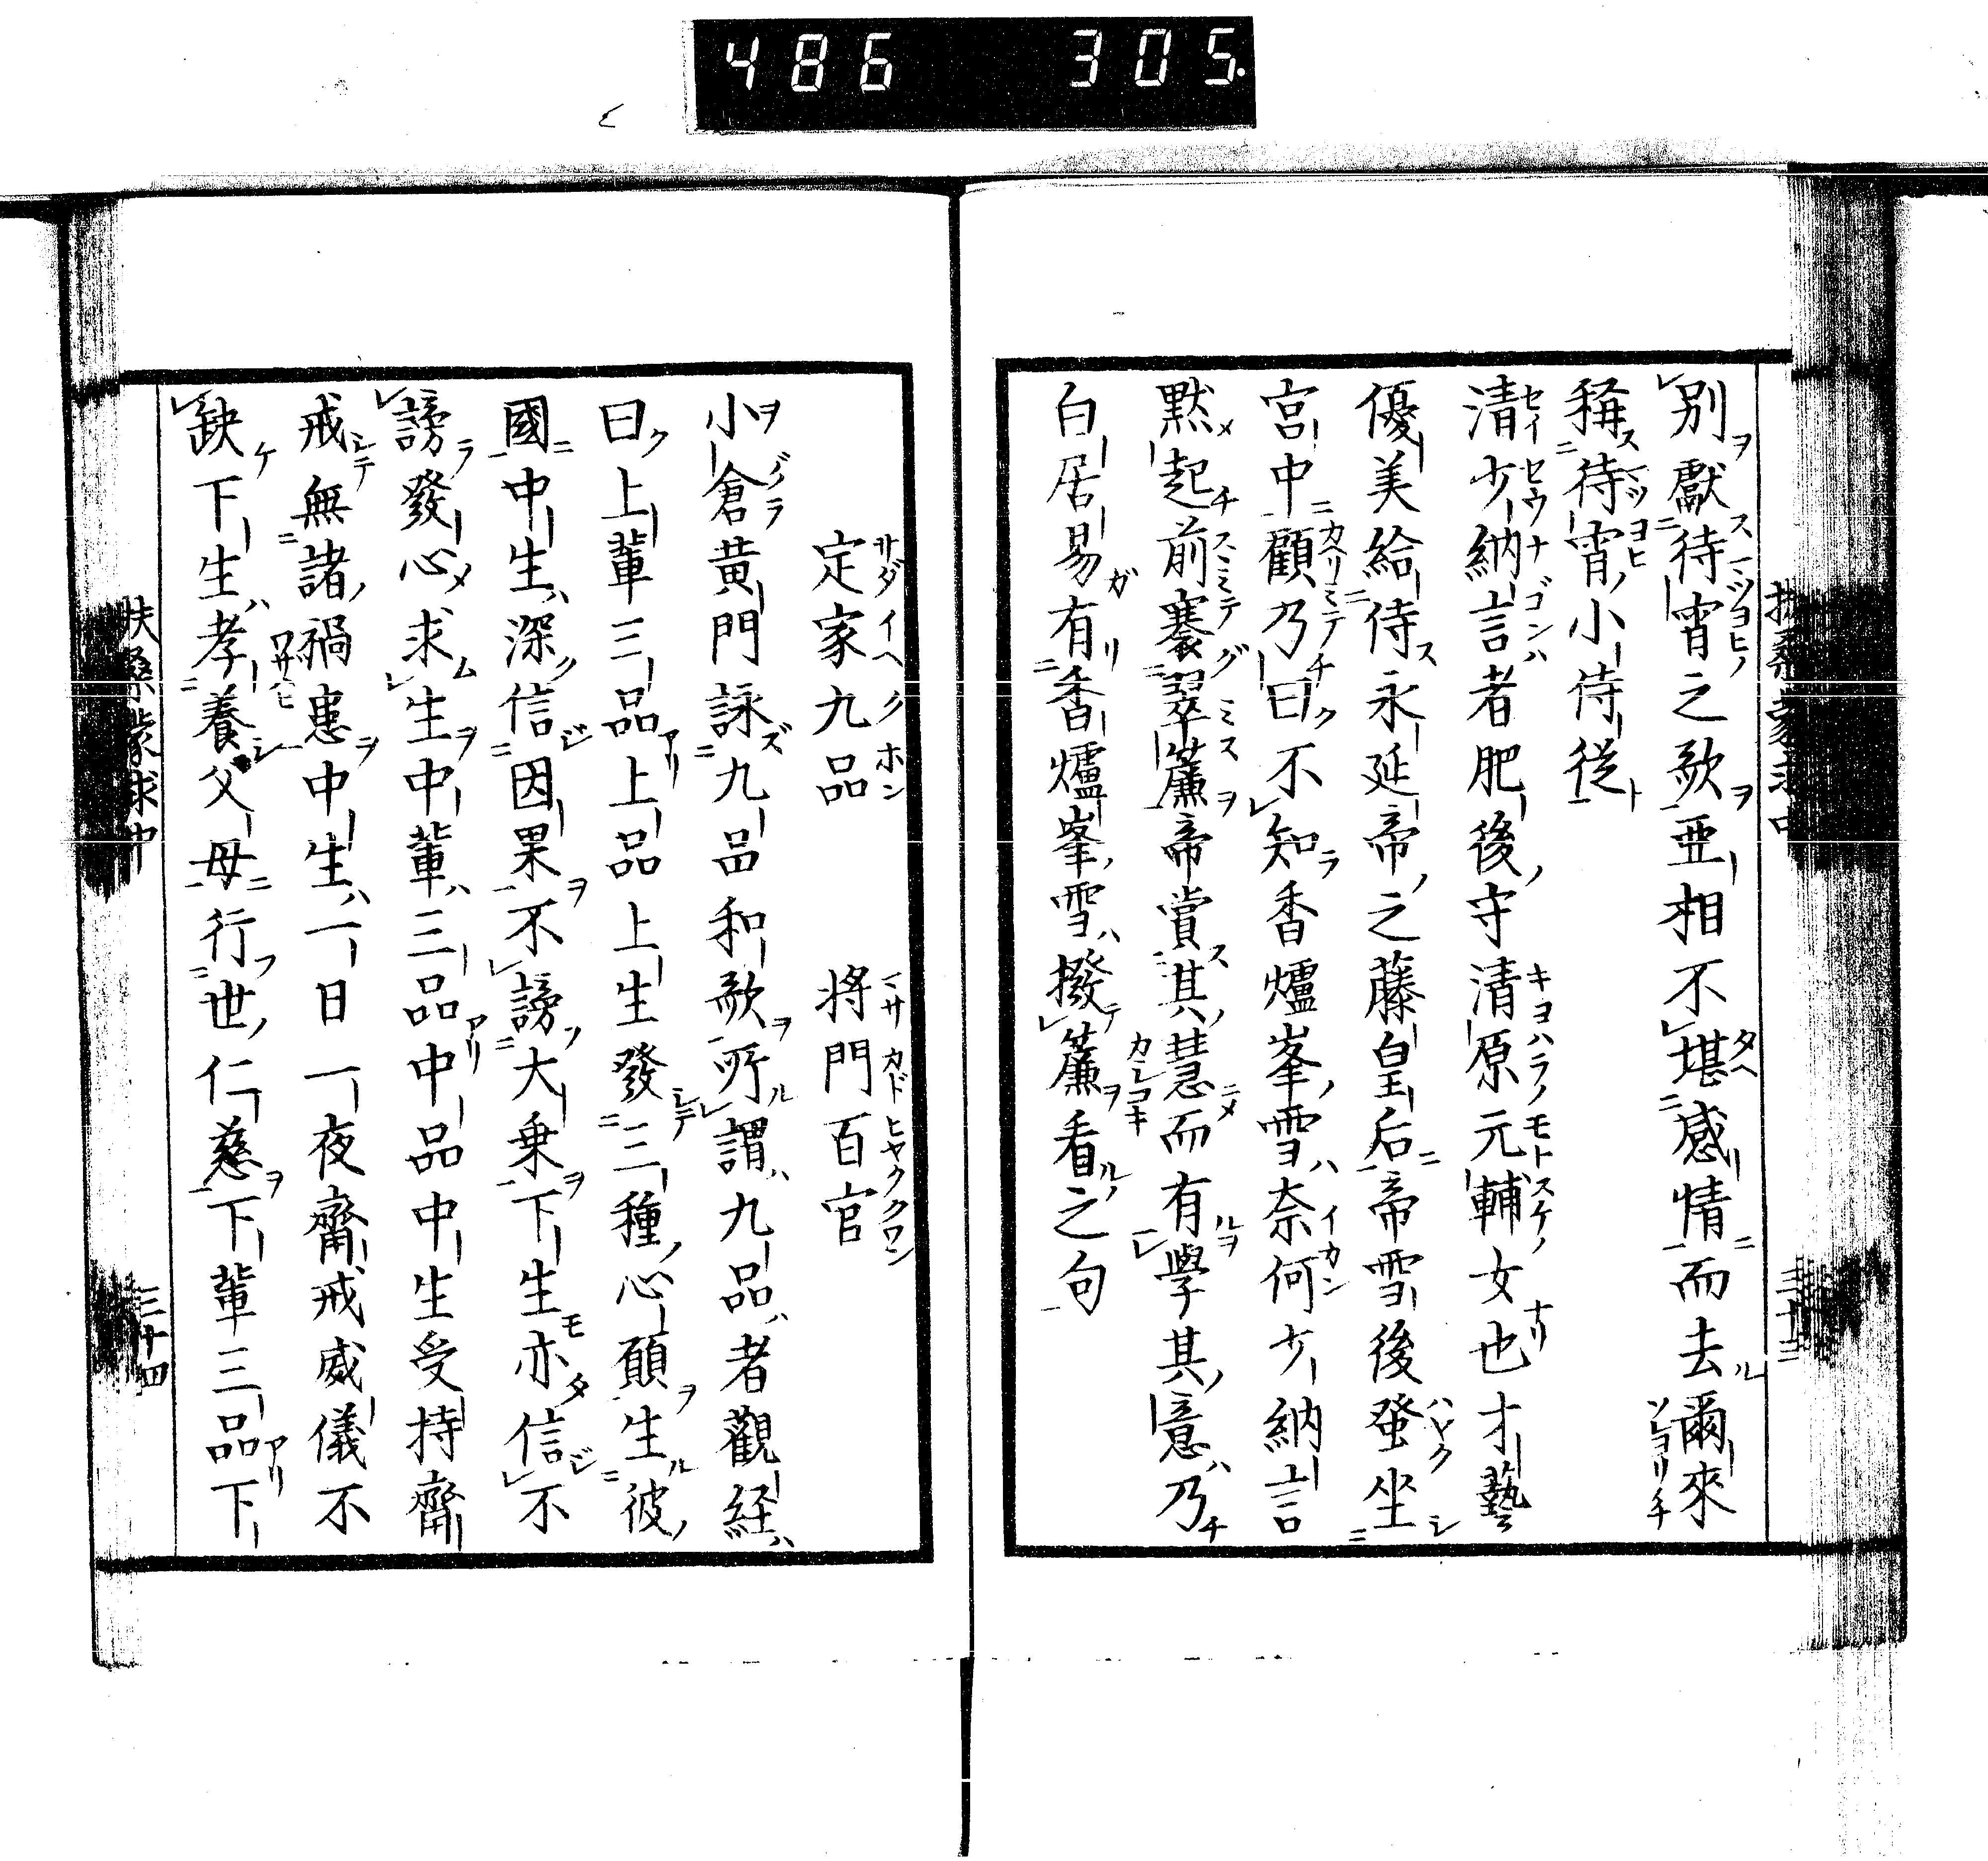 486 305
別獻待宵之歌亞相不堪感情而去爾來
稱待宵小侍從
清少納言者肥後守清原元輔女也才藝
優美給侍永延帝之藤皇后帝雪後蚤坐
宮中顧乃曰不知香爐峯雪奈何少納言
默起前褰翠簾帝賞其慧而有學其意乃
白居易有香爐峯雪撥簾看之句
定家九品 將門百官
小倉黃門詠九品和歌所謂九品者觀経
曰上輩三品上品上生發三種心願生彼
國中生深信因果不謗大乗下生亦信不
謗發心求生中輩三品中品中生受持齋
戒無諸禍患中生一日一夜齋戒威儀不
缺下生孝養父母行世仁慈下輩三品下
扶桑蒙求中
三十四